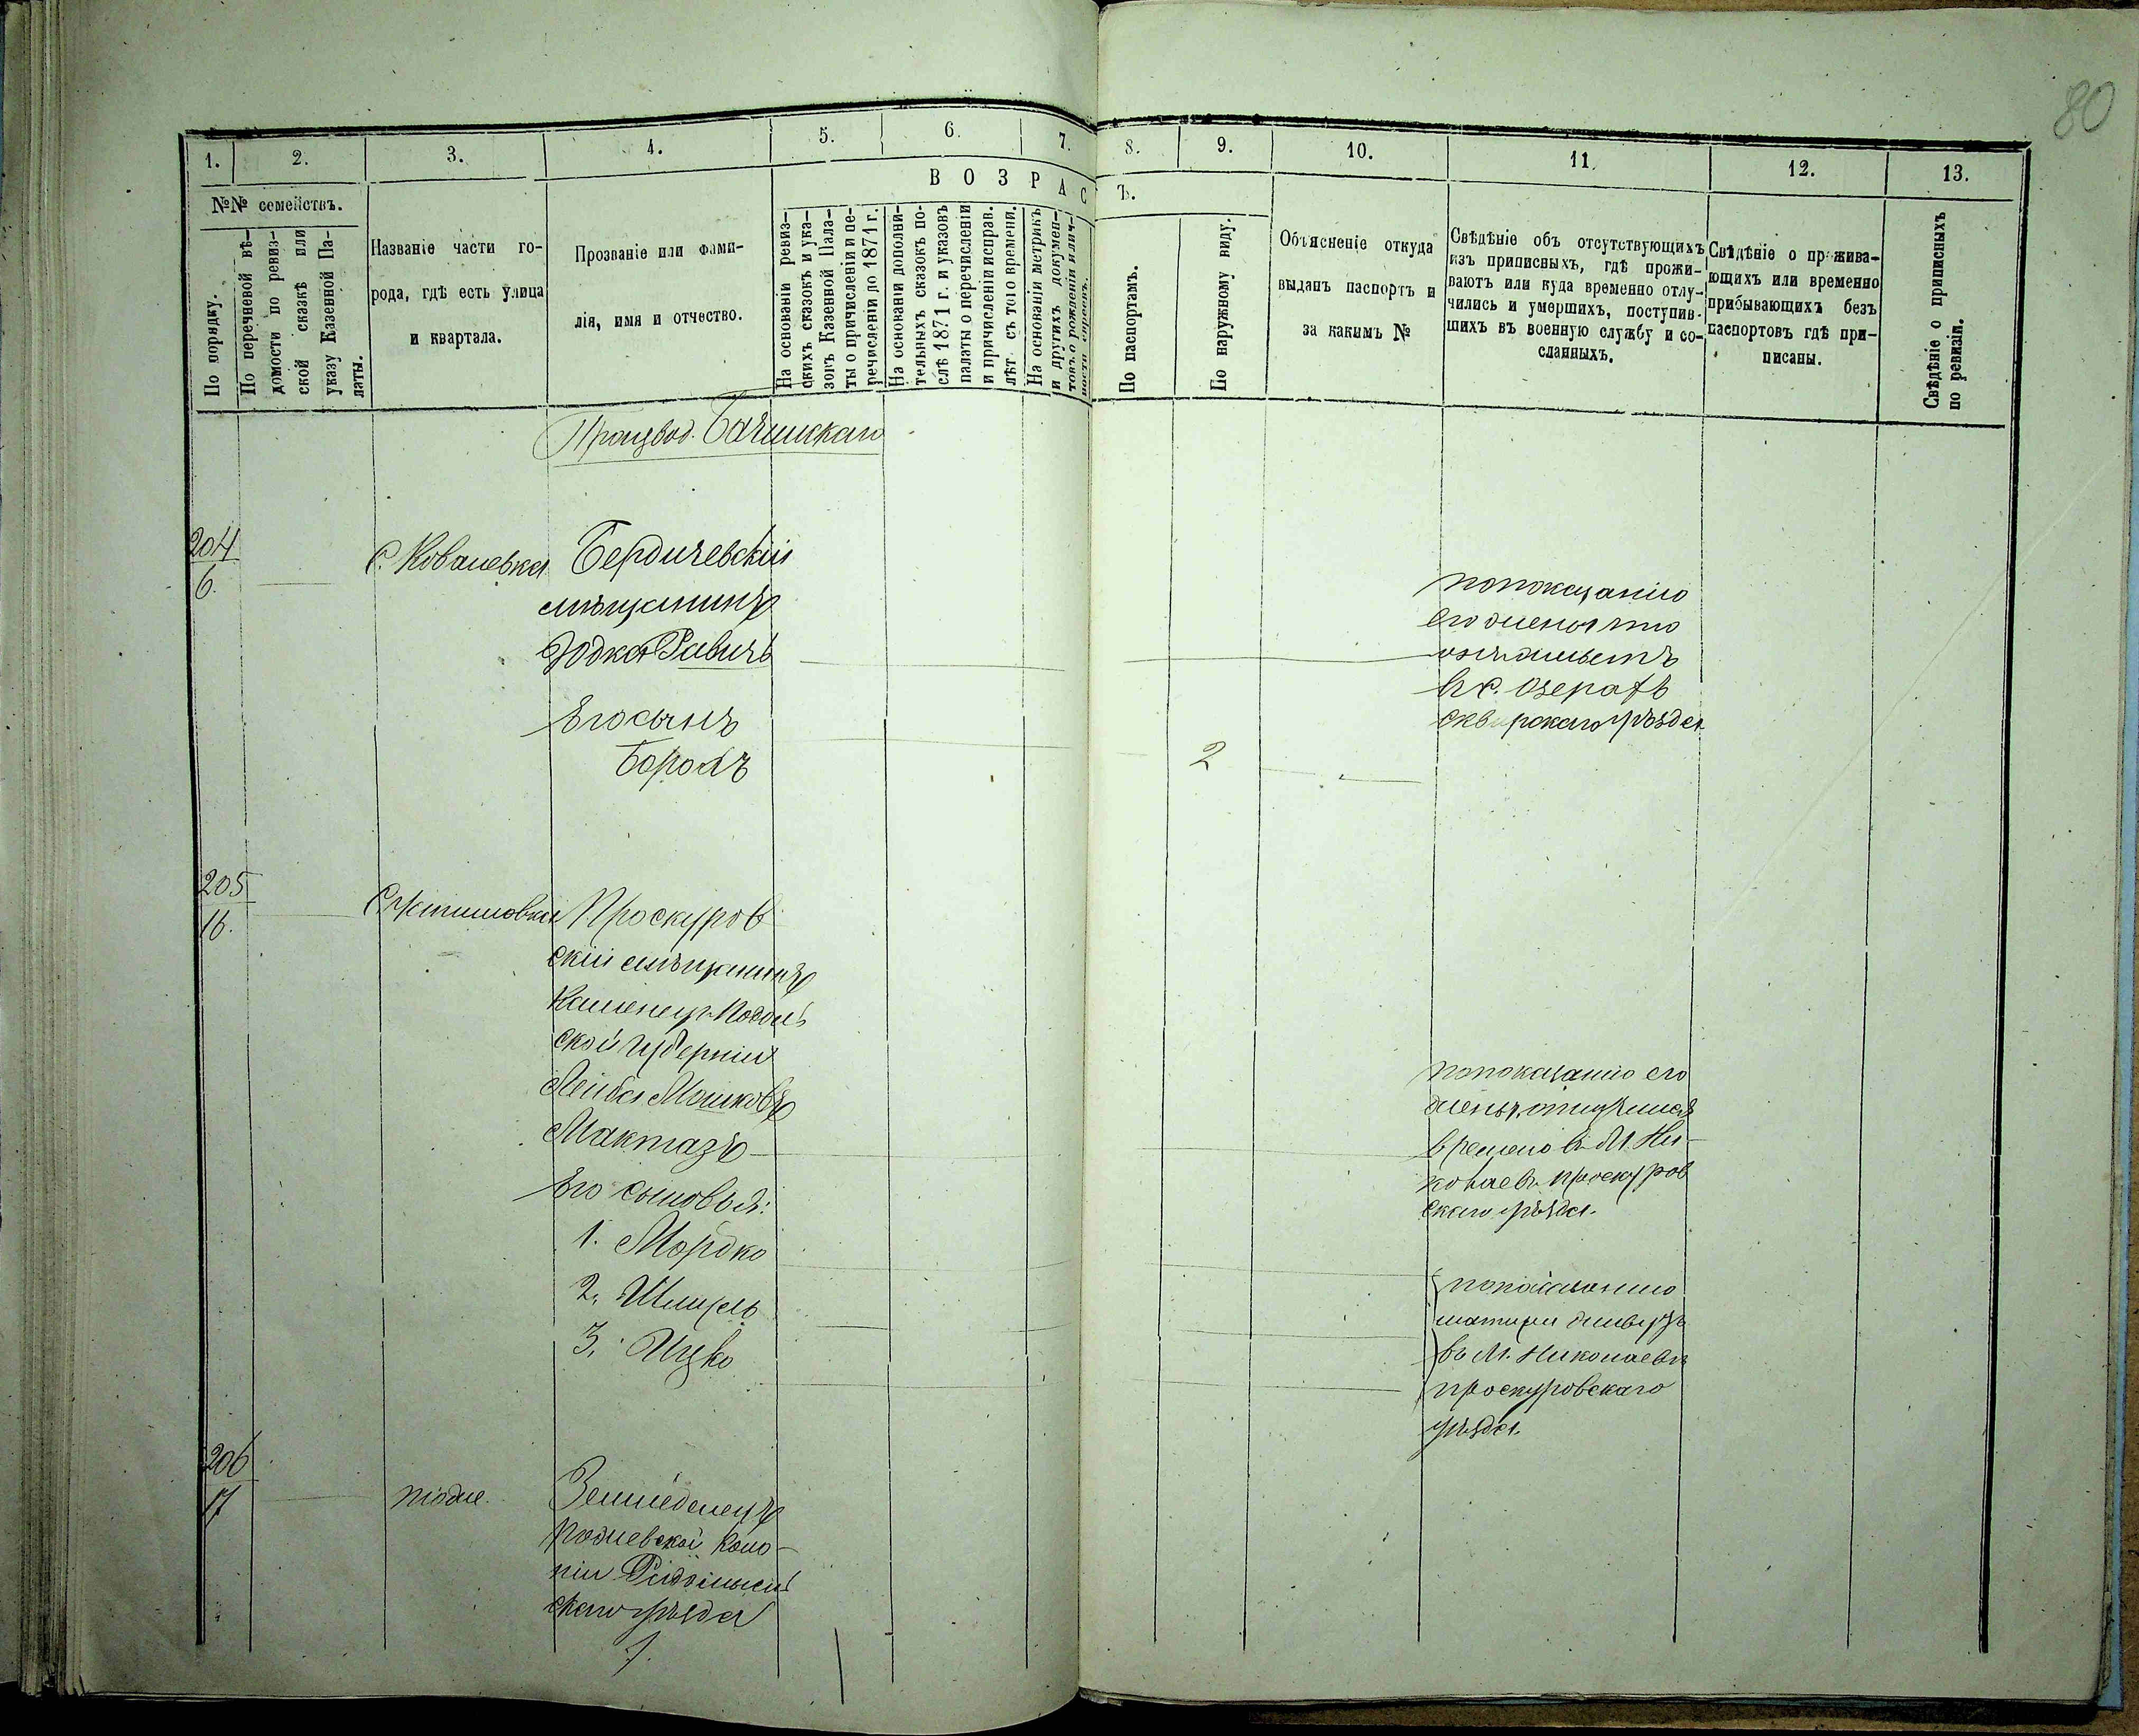 80
1.
2.
3.
4.
5.
6.
7.
8.
9.
10.
11.
12.
13.
№№ семействъ.
По порядку.
По перечневой вѣ-
домости по ревиз-
ской сказкѣ или
указу Казенной Па-
латы.
Названіе части го-
рода, гдѣ есть улица
и квартала.
Прозваніе или фами-
лія, имя и отчество.
ВОЗРАСТЪ.
На основаніи ревиз-
скихъ сказокъ и ука-
зовъ Казенной Пала-
ты о причисленіи и пе-
речисленіи до 1871 г.
На основаніи дополни-
тельныхъ сказокъ по-
слѣ 1871 г. и указовъ
палаты о перечисленіи
и причисленіи исправ.
лѣт съ того времени.
На основаніи метрикъ
и другихъ докумен-
товъ о рожденіи налич-
По паспортамъ.
По наружному виду.
Объясненіе откуда
выданъ паспортъ и
за какимъ №
Свѣдѣніе объ отсутствующихъ
изъ приписныхъ, гдѣ прожи-
ваютъ или куда временно отлу-
чились и умершихъ, поступив-
шихъ въ военную службу и со-
сланныхъ.
Свѣдѣніе о прожива-
ющихъ или временно
прибывающихъ безъ
паспортовъ гдѣ при-
писаны.
Свѣдѣніе о приписныхъ
по ревизіи.
204
6.
С. Ковалевка
Бердичевскій
мѣщанинъ
Юдка Равичъ
Его сынъ
Борохъ
2
по показанію
его жены что
онъ живетъ
в с. Озерахъ
Сквирскаго уѣзда
205
16.
Проскуров
скій мѣщанинъ
Каменец-Подоль
ской губерніи
Лейба Мошковъ
Макмазъ
Его сыновья:
1. Мордко
2. Шмуель
3. Ицко
по показанію его
жены, отлучился
времено въ М. Ни-
колаевъ Проскуров
скаго уѣзда.
по показанію
матери живутъ
въ М. Николаевѣ
Проскуровскаго
уѣзда.
206
17
тоже
Земледелецъ
колo-
ніи
скаго уѣзда